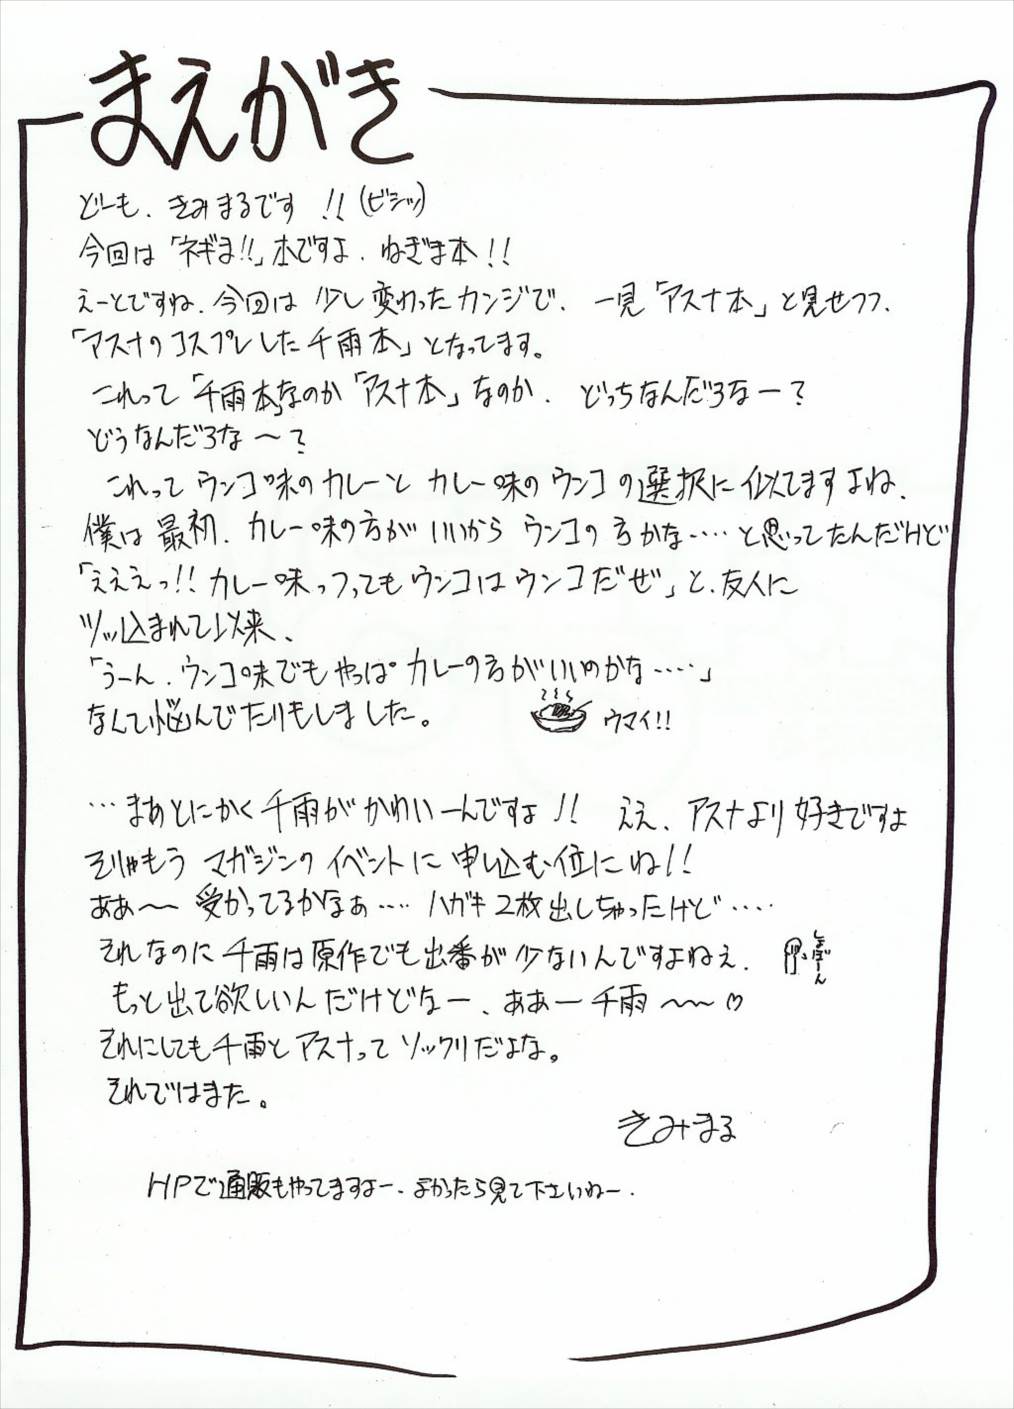 まえがき
どーも、きみまるです!!(ビシッ)
今回は「ネギま!!」本ですよ、ねぎま本!!
えーとですね、今回は少し変わったカンジで、一見「アスナ本」と見せつつ、
「アスナのコスプレした千雨本」となってます。
これって「千雨本」なのか「アスナ本」なのか、どっちなんだろなー?
どうなんだろな〜?
これってウンコ味のカレーとカレー味のウンコの選択に似てますよね、
僕は最初、カレー味の方がいいからウンコの方かな‥‥と思ってたんだけど
「えええっ!!カレー味っつってもウンコはウンコだぜ」と、友人に
ツッ込まれて以来、
「うーん、ウンコ味でもやっぱカレーの方がいいのかな‥‥」
なんて悩んでたりもしました。
ウマイ!!
…まあとにかく千雨がかわいーんですよ!!ええ、アスナより好きですよ
そりゃもうマガジンのイベントに申し込む位にね!!
ああ〜受かってるかなぁ‥‥ハガキ2枚出しちゃったけど‥‥
それなのに千雨は原作でも出番が少ないんですよねぇ、
しょぼーん
もっと出て欲しいんだけどなー、ああー千雨〜〜♡
それにしても千雨とアスナってソックリだよな。
それではまた。
きみまる
HPで通販もやってますよー、よかったら見て下さいねー。